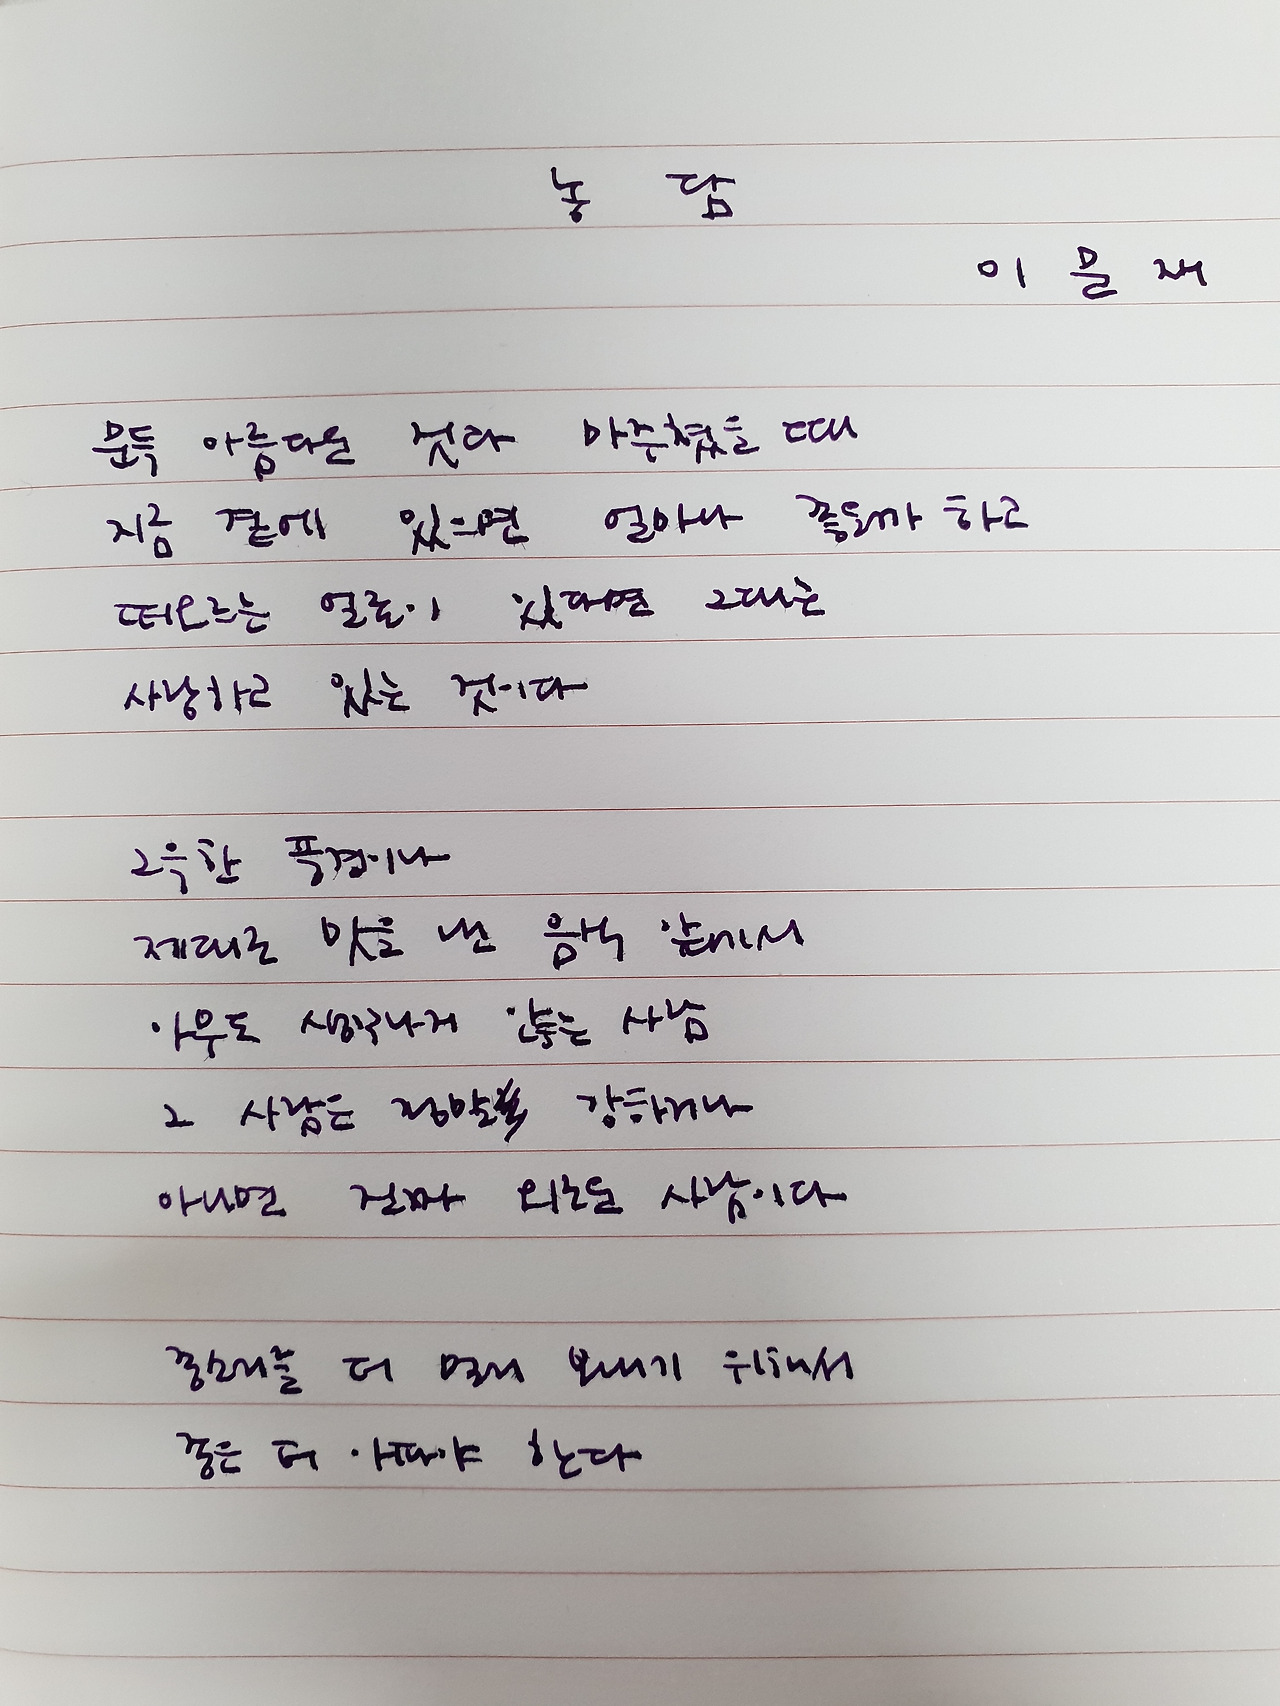 농 담
이 문 재
문득 아름다운 것과 마주쳤을 때
지금 곁에 있으면 얼마나 좋을까 하고
떠오르는 얼굴이 있다면 그대는
사랑하고 있는 것이다
그윽한 풍경이나
제대로 맛을 낸 음식 앞에서
아무도 생각나지 않는 사람
그 사람은 정말 강하거나
아니면 진짜 외로운 사람이다
종소리를 더 멀리 보내기 위해서
종은 더 아파야 한다